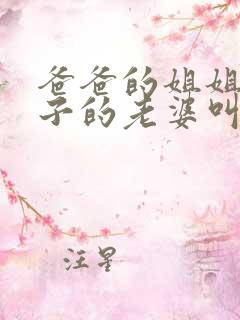 爸爸的姐姐
子的老婆叫
汪星